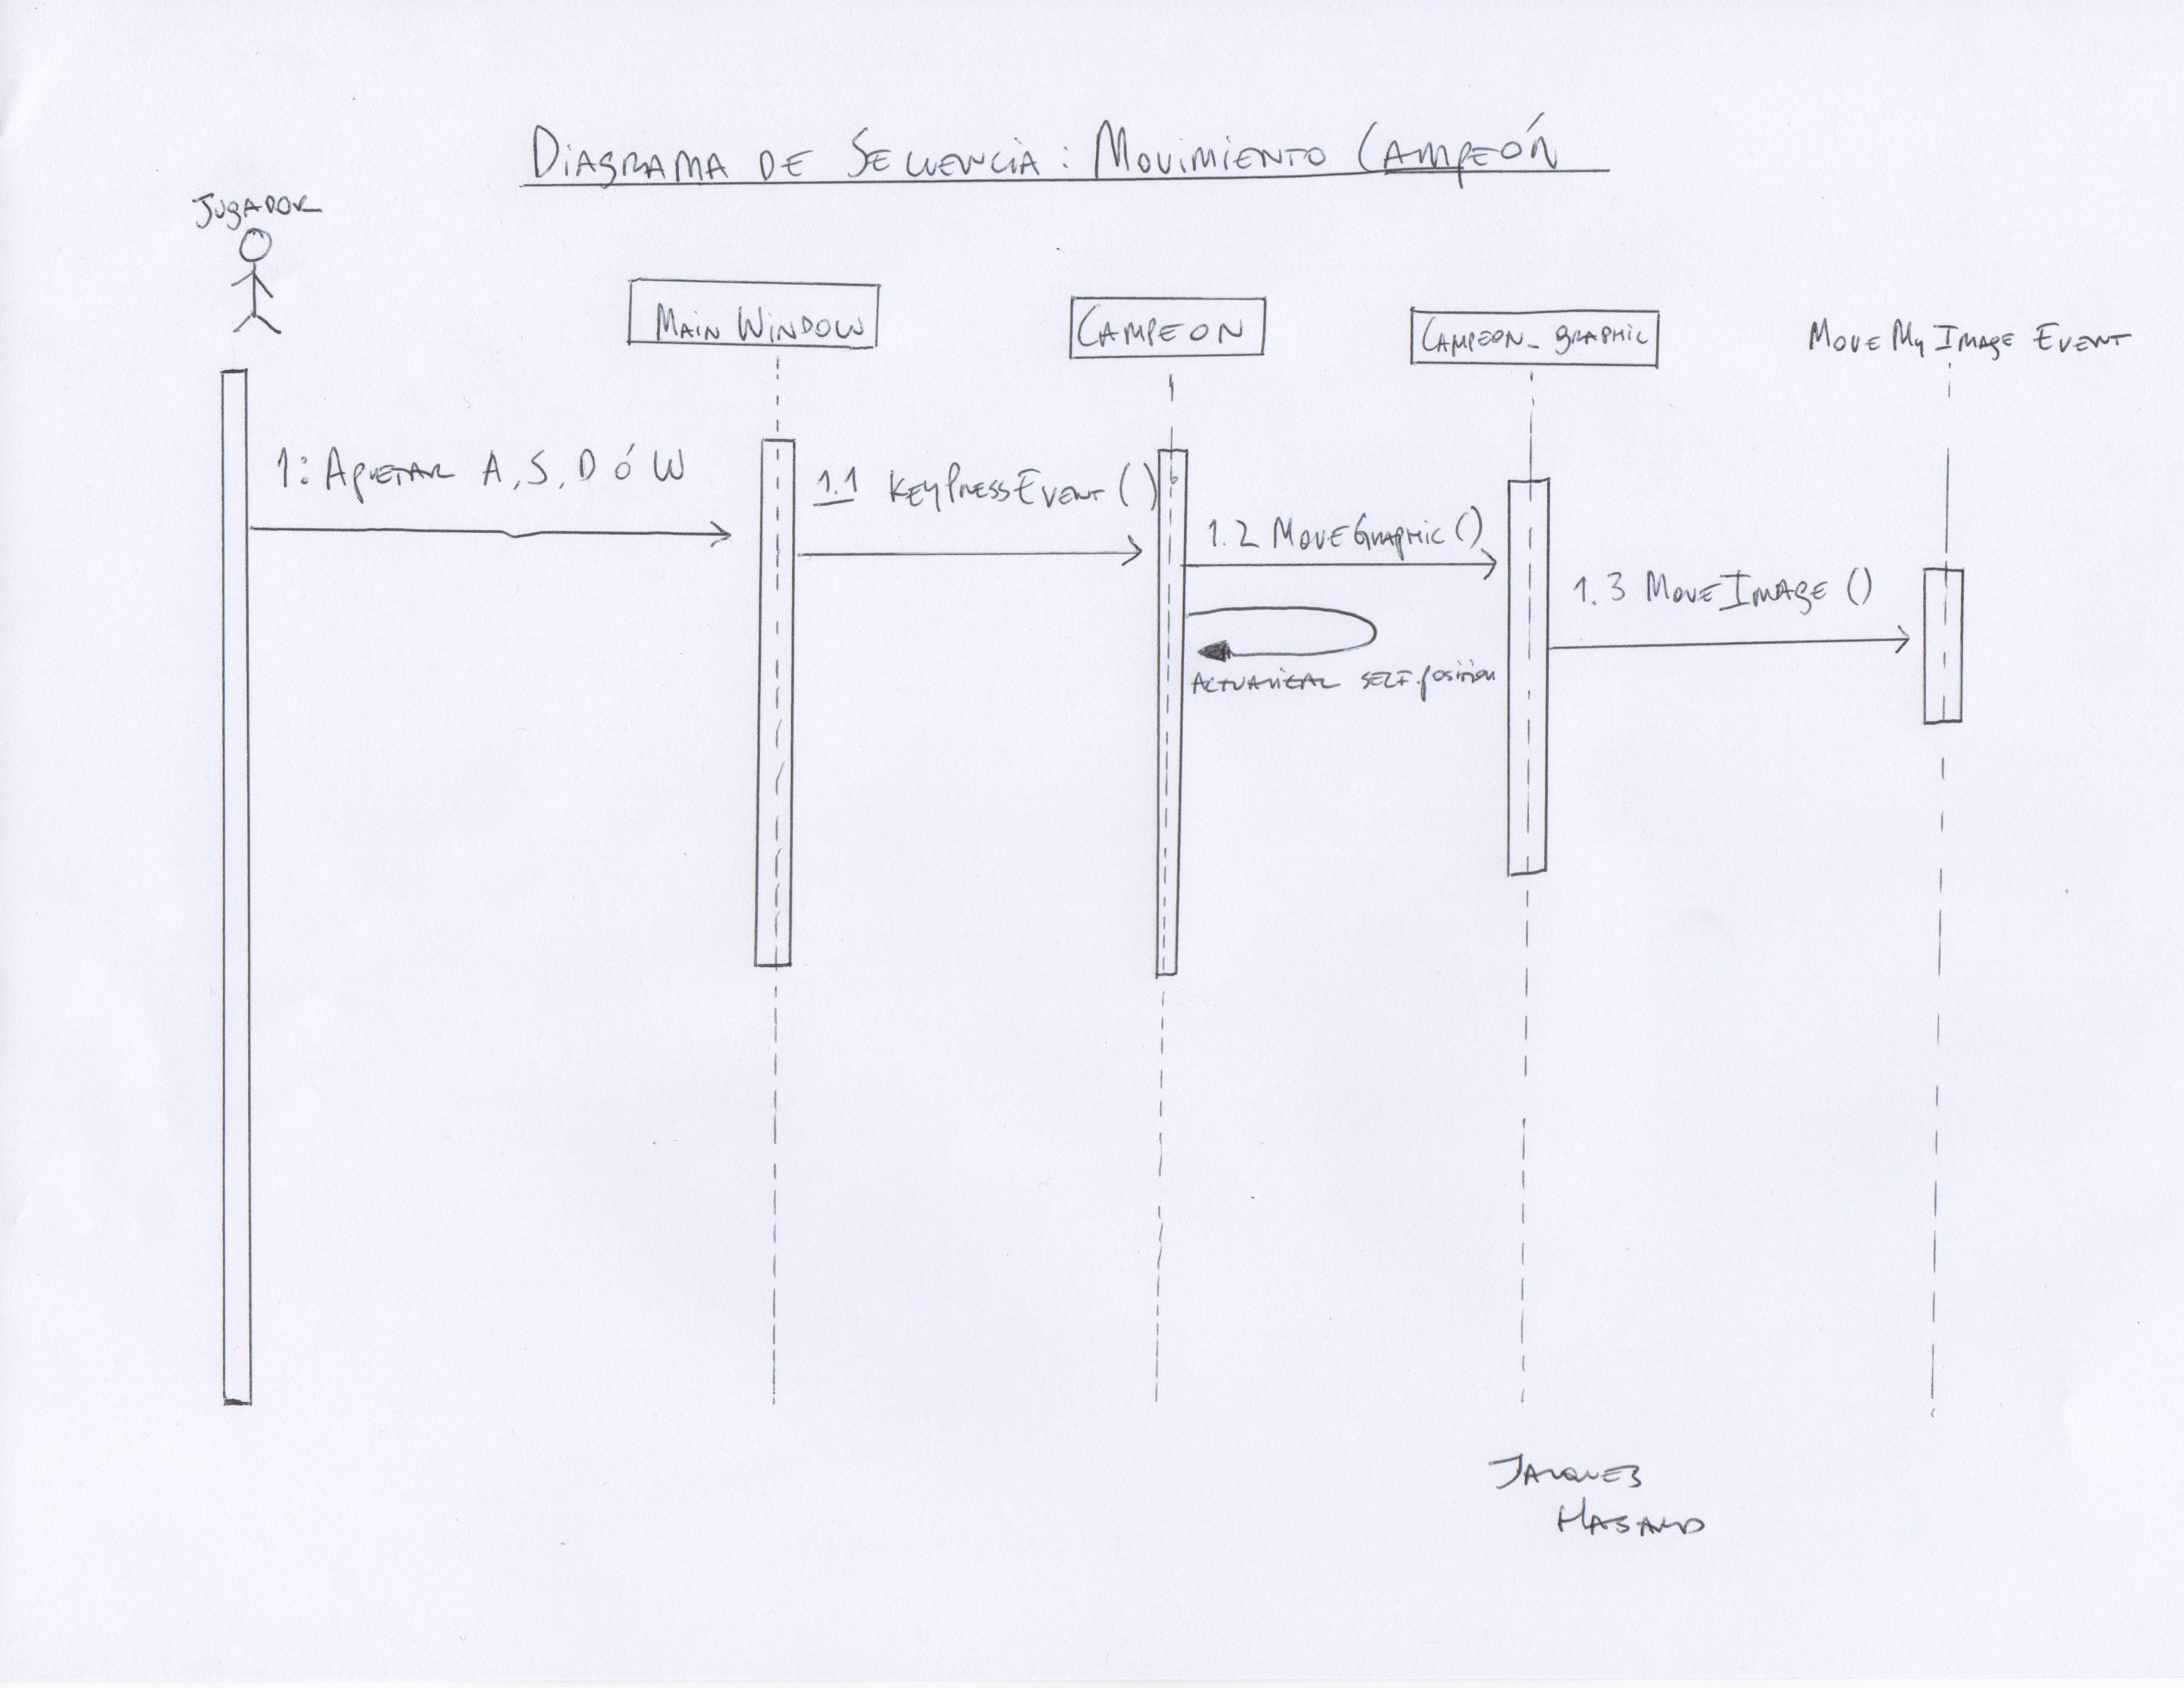 DIAGRAMA DE SECUENCIA: MOVIMIENTO CAMPEÓN
JUGADOR
MAIN WINDOW
CAMPEON
CAMPEON_GRAPHIC
MOVE MY IMAGE EVENT
1: APRETAR A, S, D ó W
1.1 KEYPRESSEVENT ()
1.2 MOVEGRAPHIC ()
1.3 MOVEIMAGE ()
ACTUALIZAR SELF.position
JACQUES